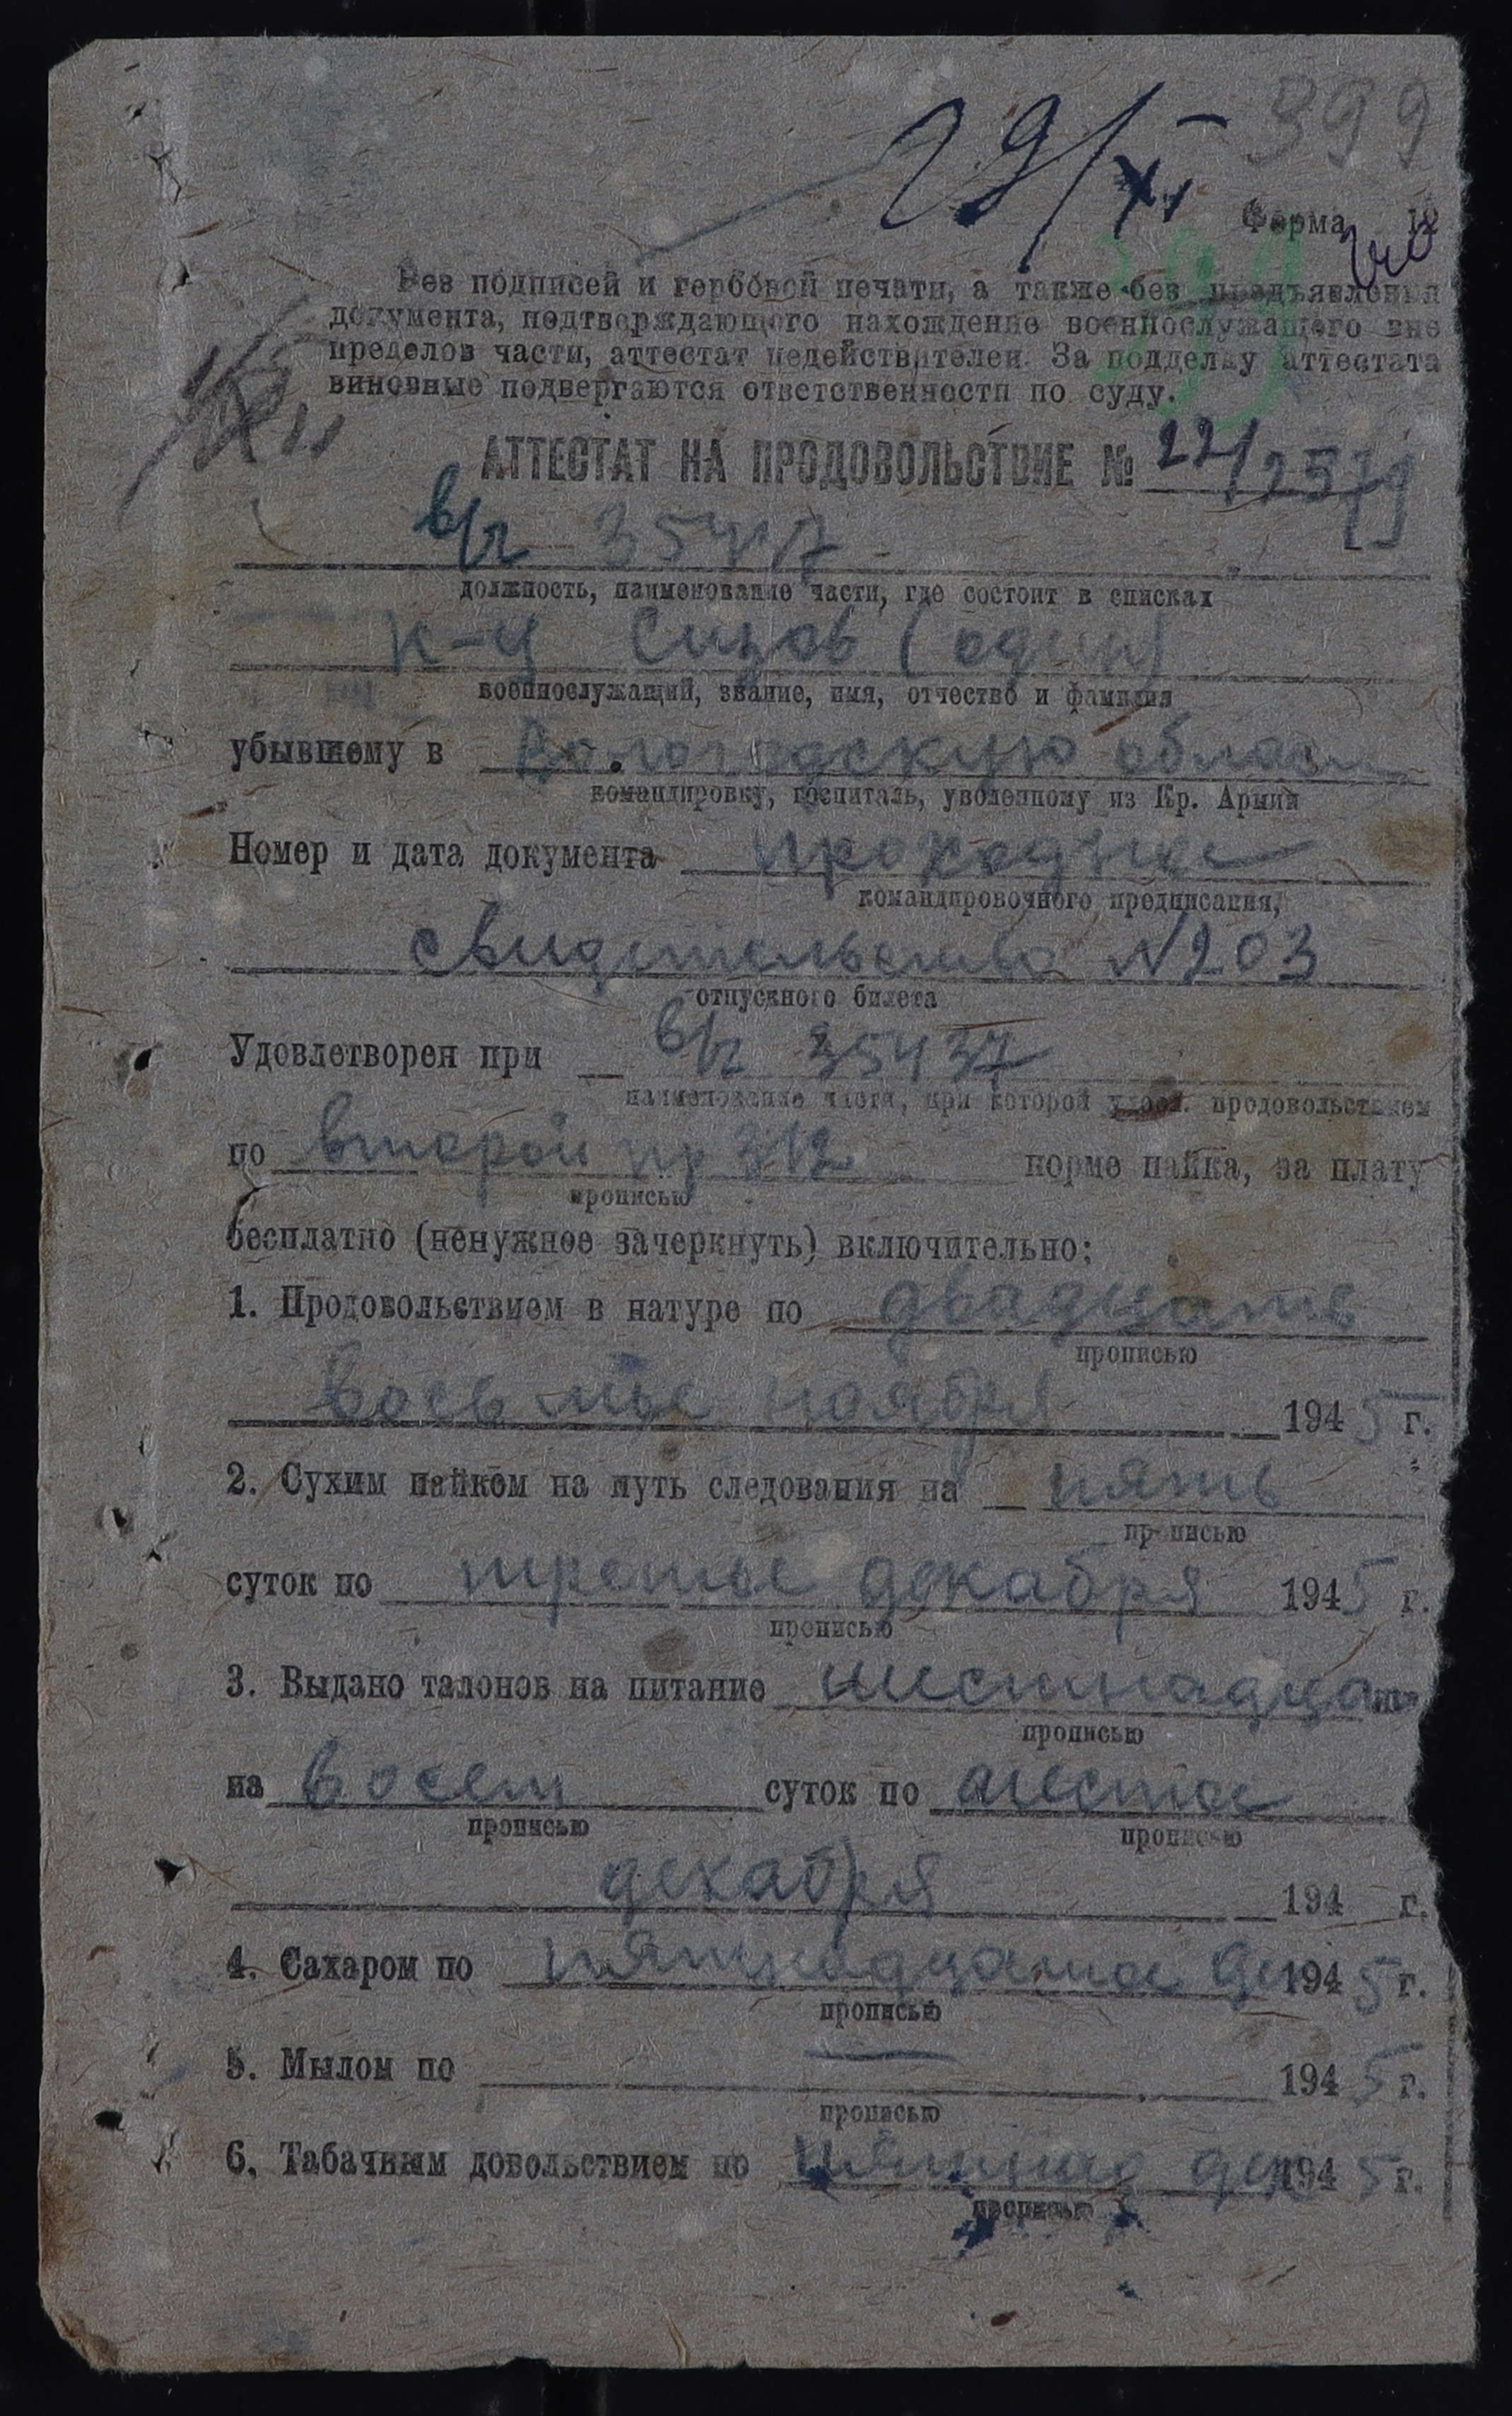 399
29/XI
Форма 12
399
Без подписей и гербовой печати, а также без предъявления
документа, подтверждающего нахождение военнослужащего вне
пределов части, аттестат недействителен. За подделку аттестата
виновные подвергаются ответственности по суду.
АТТЕСТАТ НА ПРОДОВОЛЬСТВИЕ № 221/2579
в/ч 35437
должность, наименование части, где состоит в списках
к-ц Сизов (один)
военнослужащий, звание, имя, отчество и фамилия
убывшему в Вологодскую област
командировку, госпиталь, уволенному из Кр. Армии
Номер и дата документа проходное
командировочного предписания,
свидетельство N203
отпускного билета
Удовлетворен при в/ч 35437
наименование части, при которой удовл. продовольствием
по второй пр 312 норме пайка, за плату
прописью
бесплатно (ненужное зачеркнуть) включительно:
1. Продовольствием в натуре по двадцать
прописью
восьмое ноября 1945 г.
2. Сухим пайком на путь следования на пять
прописью
суток по третье декабря 1945 г.
прописью
3. Выдано талонов на питание шестнадцать
прописью
на восем суток по шестое
прописью прописью
декабря 194 г.
4. Сахаром по пятнадцатое дек 1945 г.
прописью
5. Мылом по — 1945 г.
прописью
6. Табачным довольствием по пятнад дек 1945 г.
прописью